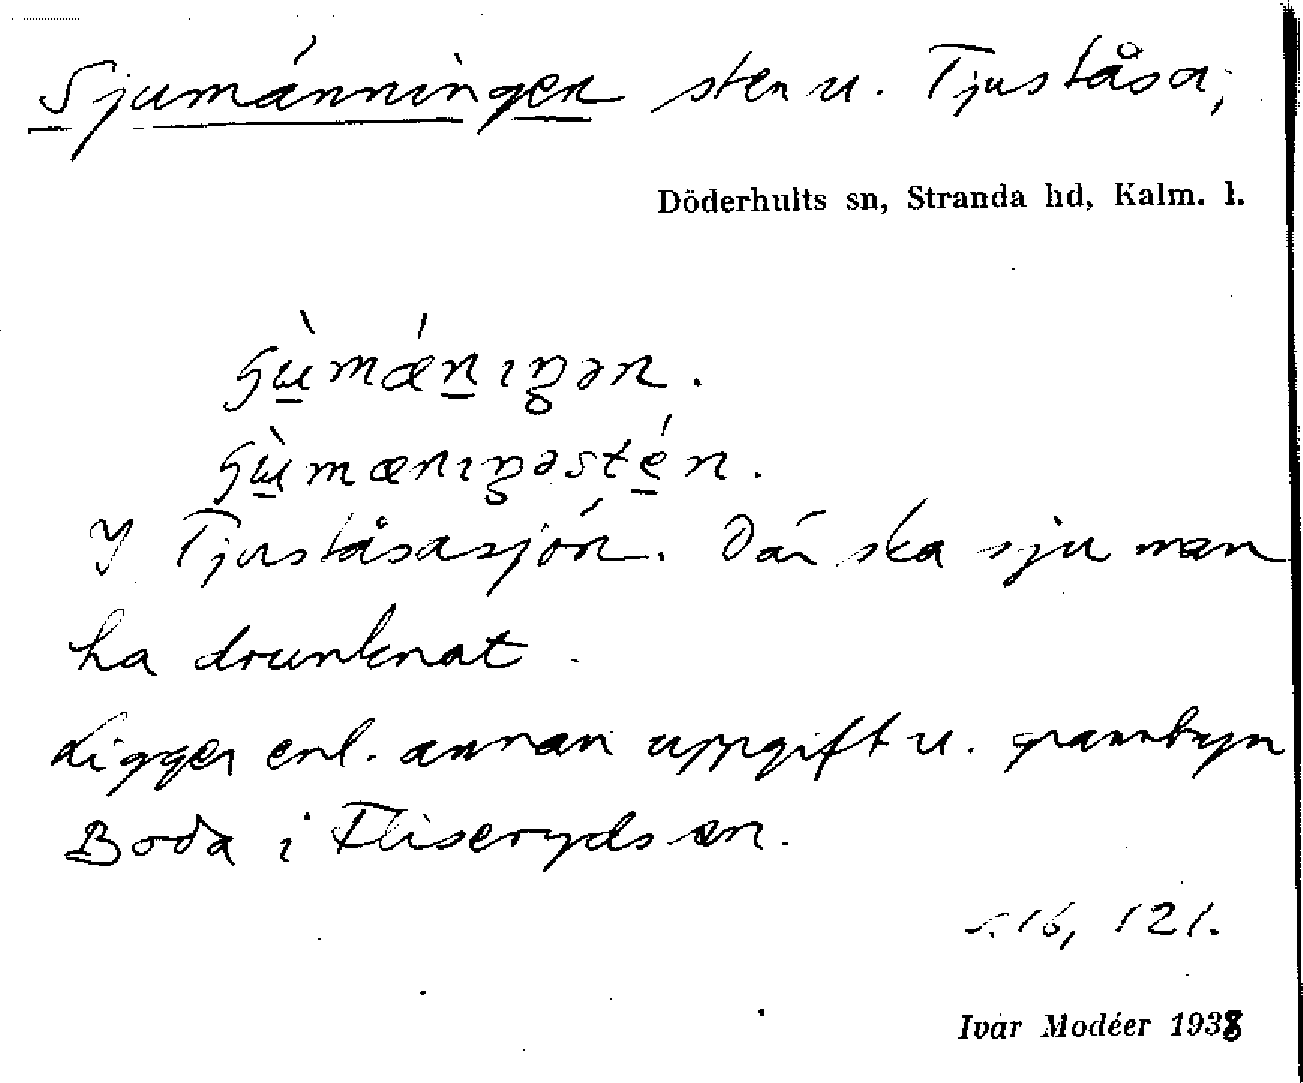 Sjumänningen sten u. Tjuståsa,
Döderhults sn, Stranda hd, Kalm. l.
I Tjuståsasjön. Där ska sju män
ha drunknat.
Ligger enl. annan uppgift u. grannbyn
Boda i Fliseryds sn.
s. 16, 121.
Ivar Modéer 1938